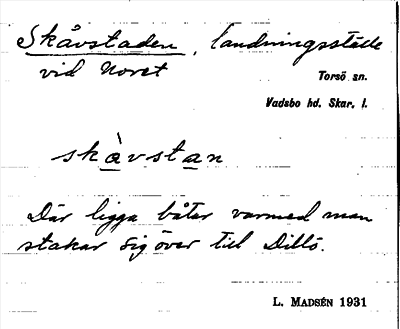 Skåvstaden, landningsställe
vid Noret
Torsö sn.
Vadsbo hd. Skar. l.
skàvstan
Där ligga båtar varmed man
stakar sig över till Dillö.
L. MADSÉN 1931